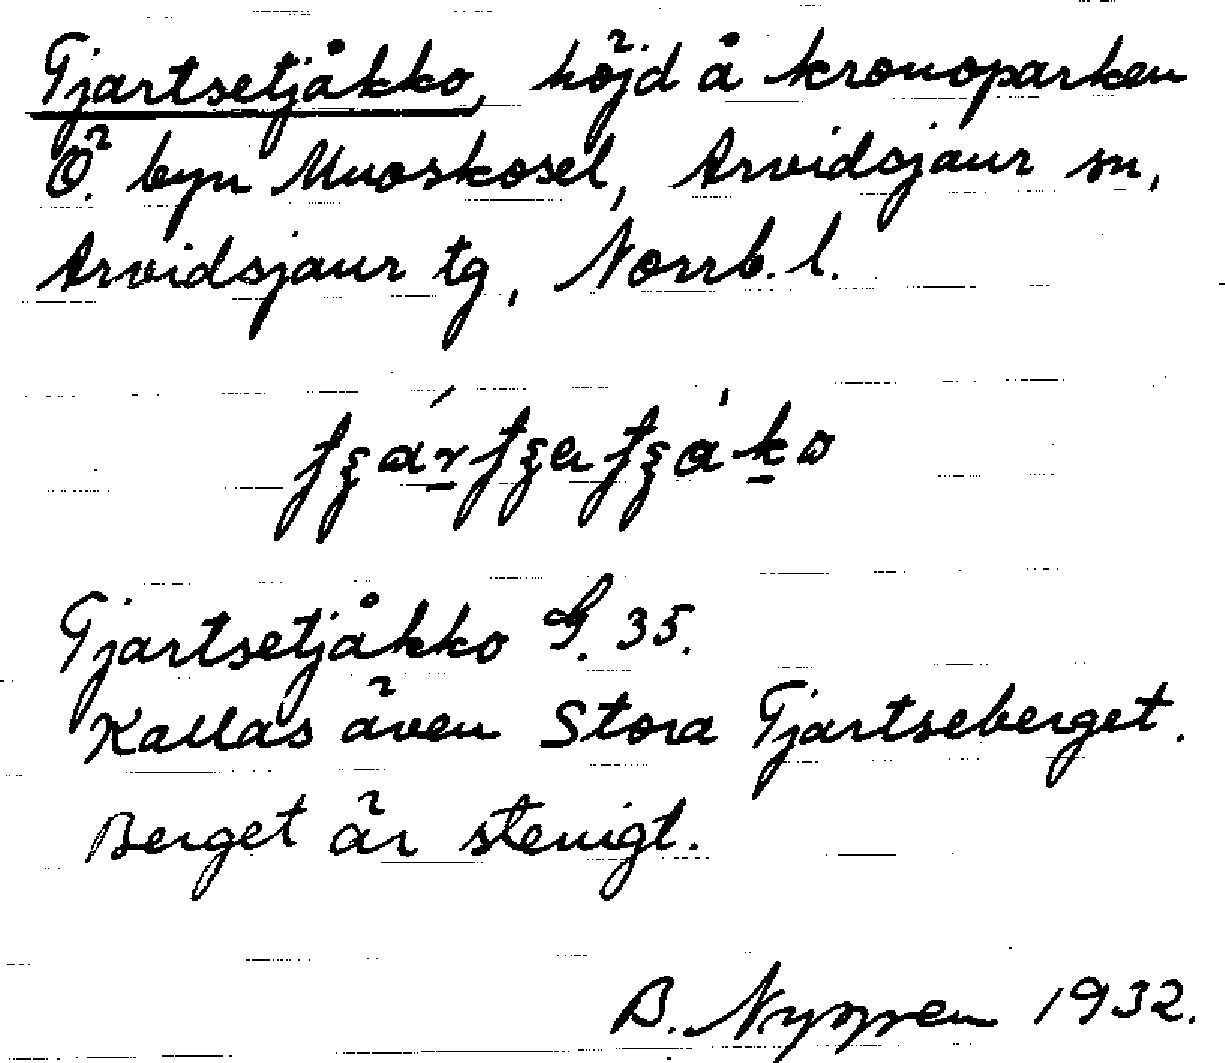 Tjartsetjåkko, höjd å kronoparken
Ö. byn Muoskosel, Arvidsjaur sn,
Arvidsjaur tg, Norrb. l.
Tjartsetjåkko G. 35.
Kallas även Stora Tjartseberget.
Berget är stenigt.
B. Nygren 1932.